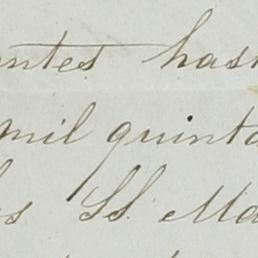 entes has
mil quinta
es SS. Ma